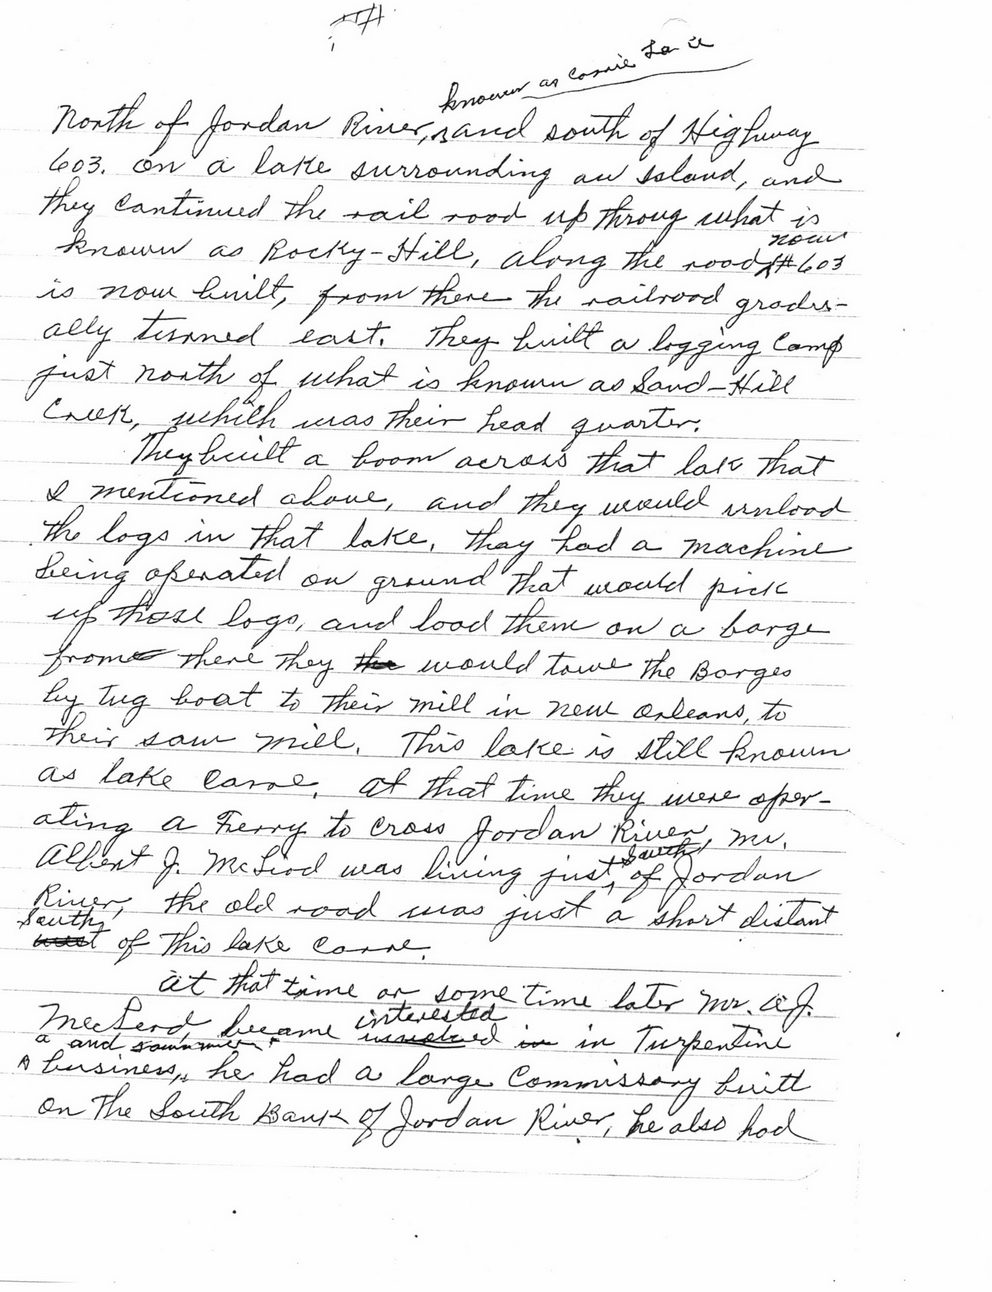 known as Corrie La
North of Jordan River, and south of Highway
603. on a lake surrounding an Island, and
they continued the rail road up throug what is
known as Rocky-Hill, along the road now #603
is now built, from there the railroad gradu-
ally turned east. They built a logging Camp
just north of what is known as Sand-Hill
Creek, which was their head quarter.
They built a boom across that lak that
I mentioned above, and they would unload
the logs in that lake. they had a machine
being operated on ground that would pick
up those logs, and load them on a barge
from there they the would towe the Barges
by Tug boat to their mill in New Orleans, to
their saw mill. This lake is still known
as lake Caroe. At that time they were oper-
ating a Ferry to cross Jordan River, Mr.
Albert J. McLeod was living just South of Jordan
River, the old road was just a short distant
South of this lake Caroe.
At that time or some time later Mr. A.J.
McLeod, became interested in in Turpentine
a and sawmill
business, he had a large Commissary built
on The South Bank of Jordan River, he also had